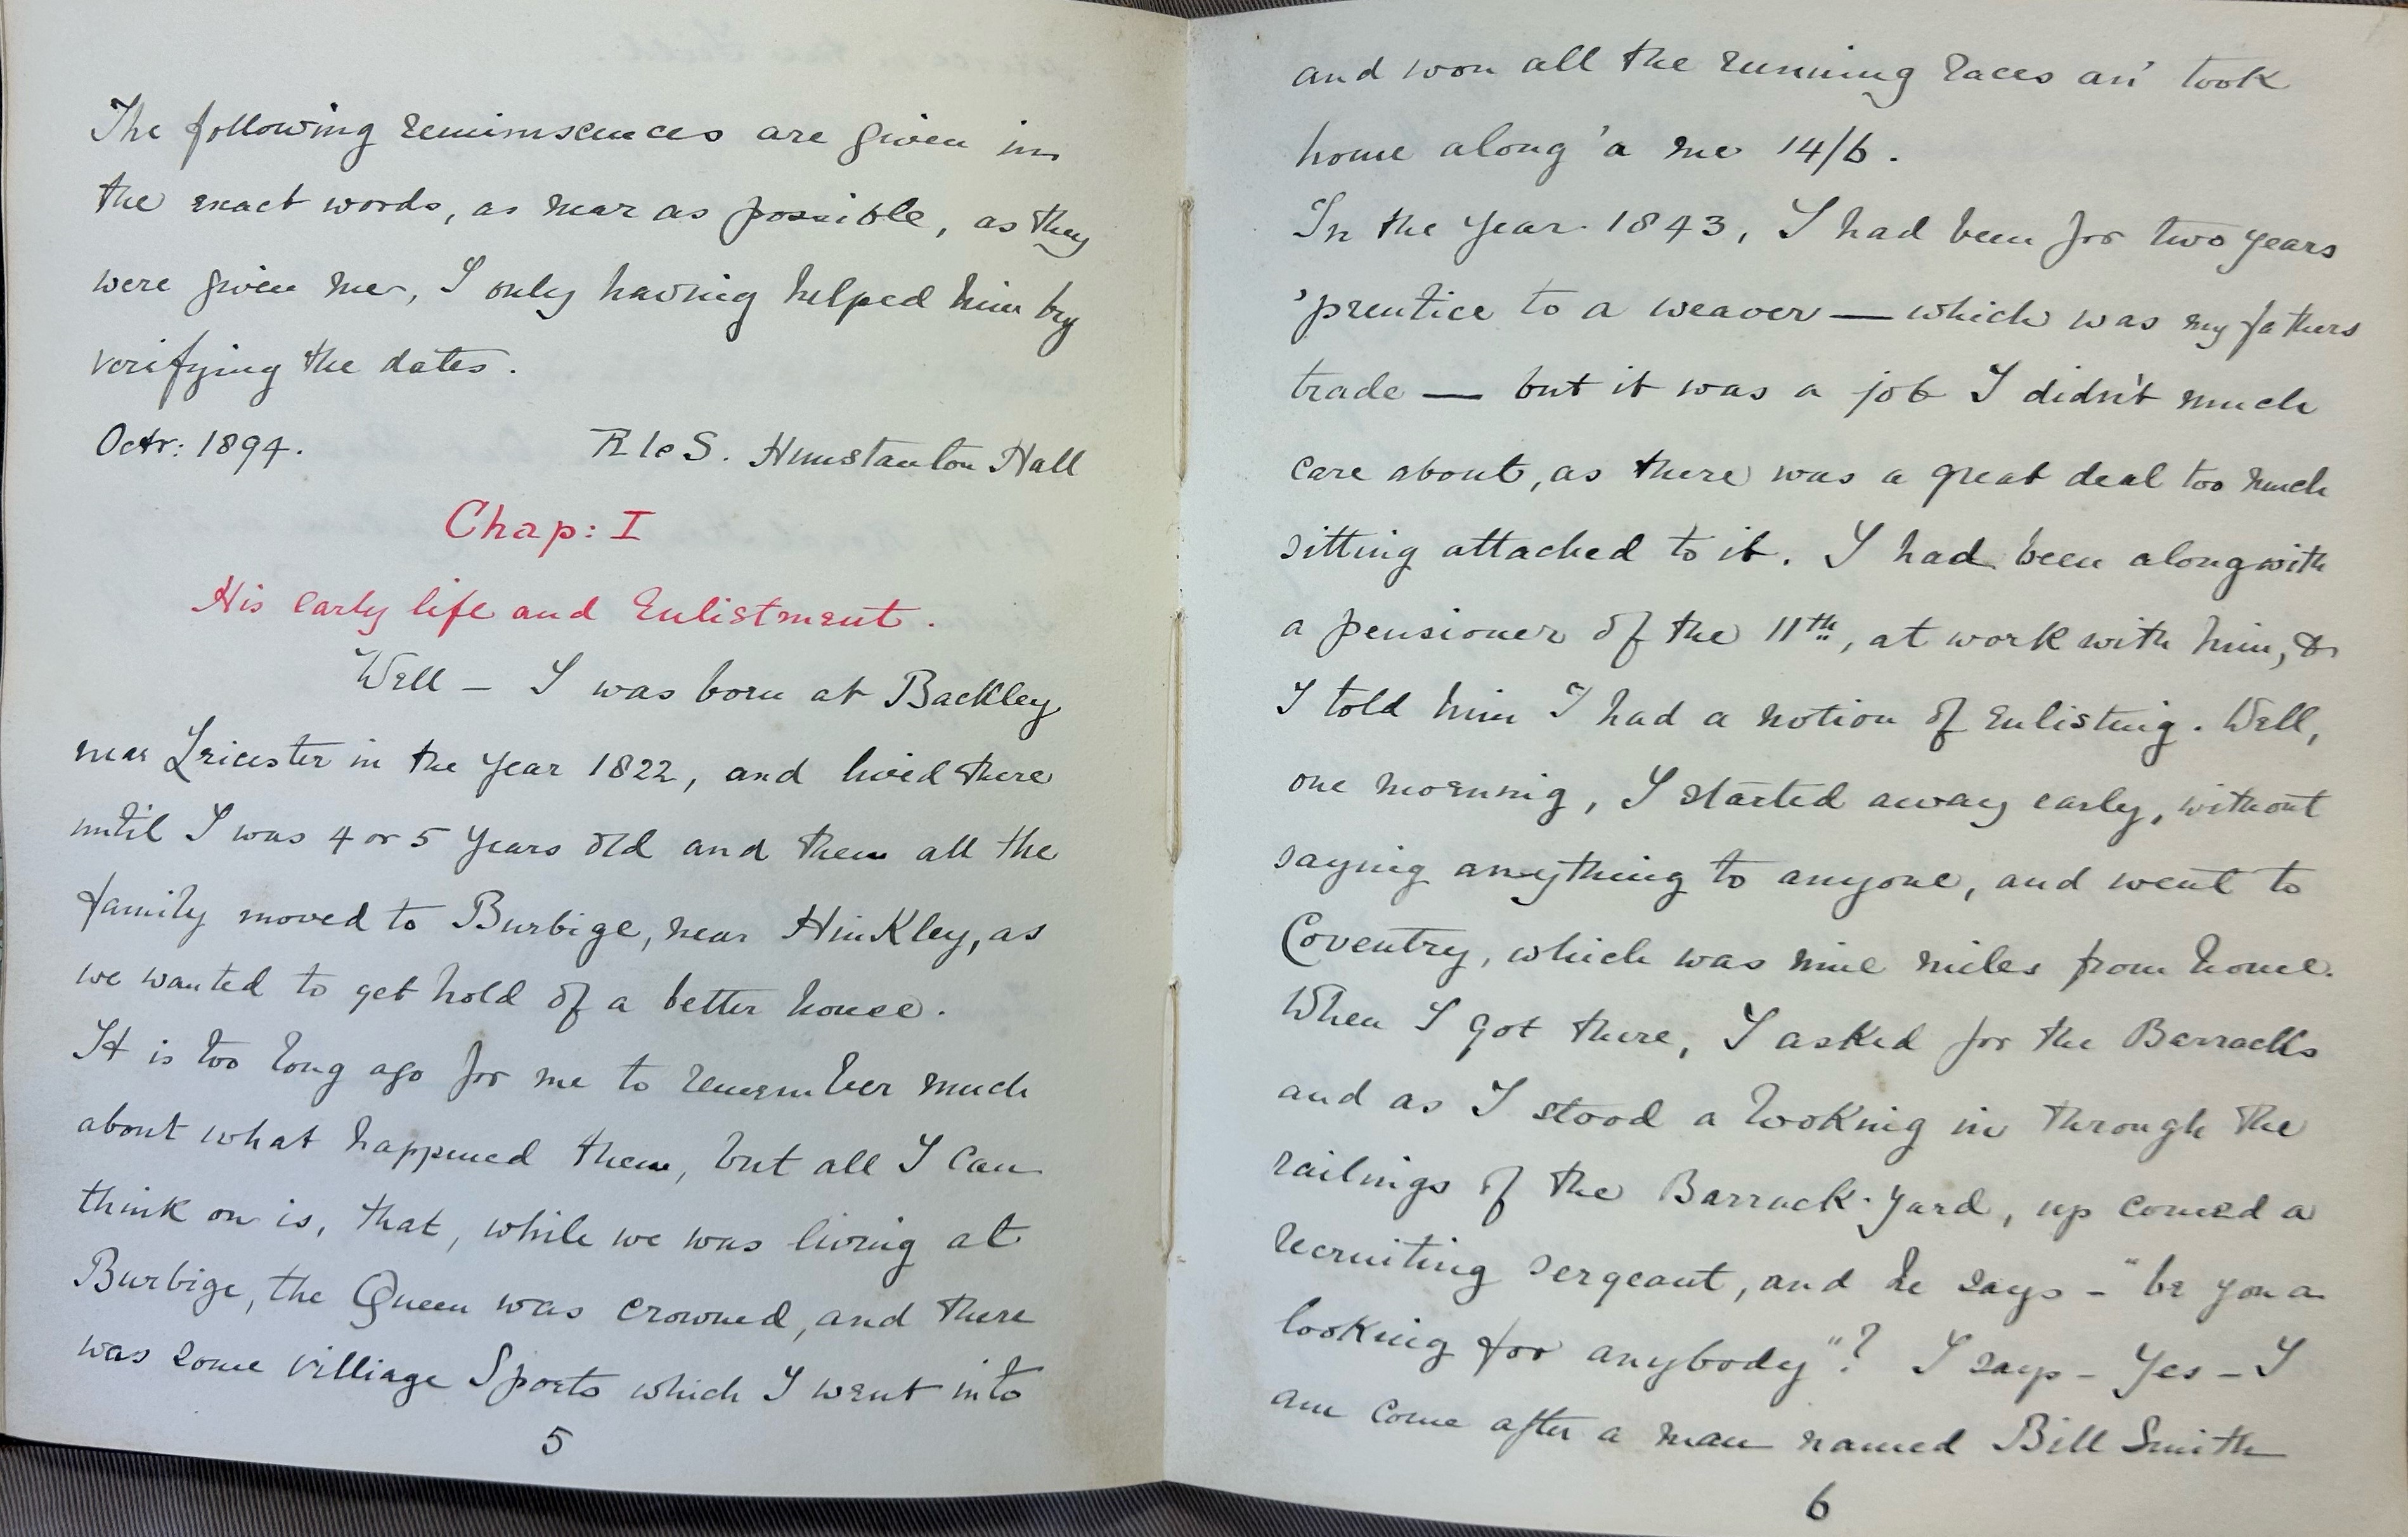 The following reminiscences are given in
the exact words, as near as possible, as they
were given me, I only having helped him by
verifying the dates.
Octr: 1894. R le S. Hunstanton Hall
Chap: I
His early life and Enlistment.
Well – I was born at Backley
near Leicester in the year 1822, and lived there
until I was 4 or 5 years old and then all the
family moved to Burbige, near Hinkley, as
we wanted to get hold of a better house.
It is too long ago for me to remember much
about what happened then, but all I can
think on is, that, while we was living at
Burbige, the Queen was crowned, and there
was some villiage Sports which I went into
5
and won all the running races an' took
home along 'a me 14/6.
In the year 1843, I had been for two years
'prentice to a weaver — which was my fathers
trade — but it was a job I didn't much
care about, as there was a great deal too much
sitting attached to it. I had been along with
a pensioner of the 11th, at work with him, &
I told him I had a notion of enlisting. Well,
one morning, I started away early, without
saying anything to anyone, and went to
Coventry, which was nine miles from home.
When I got there, I asked for the Barracks
and as I stood a looking in through the
railings of the Barrack-yard, up comed a
recruiting sergeant, and he says – "be you a
looking for anybody"? I says – Yes – I
am come after a man named Bill Smith
6